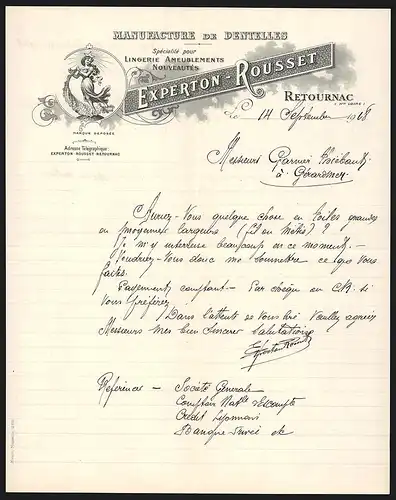 MANUFACTURE DE DENTELLES
Spécialité pour
LINGERIE AMEUBLEMENTS
NOUVEAUTÉS
EXPERTON-ROUSSET
RETOURNAC
(Hte LOIRE)
MARQUE DÉPOSÉE
Adresse Télégraphique:
EXPERTON-ROUSSET-RETOURNAC
Le 14 Septembre 1918
Messieurs Garnier Thiébaut
à Gérardmer
Auriez-Vous quelque chose en toiles grandes
ou moyennes largeurs (fil ou métis) ?
Je m'y intéresse beaucoup en ce moment. -
Voudriez-Vous donc me soumettre ce que Vous
faites.
Payement comptant - Par chèque ou C.R. si
Vous préférez.
Dans l'attente de vous lire Veuillez agréer
Messieurs mes bien sincères salutations
Experton Rousset
Référence - Société Générale
Comptoir Natle d'Escompte
Crédit Lyonnais
Banque Privée etc